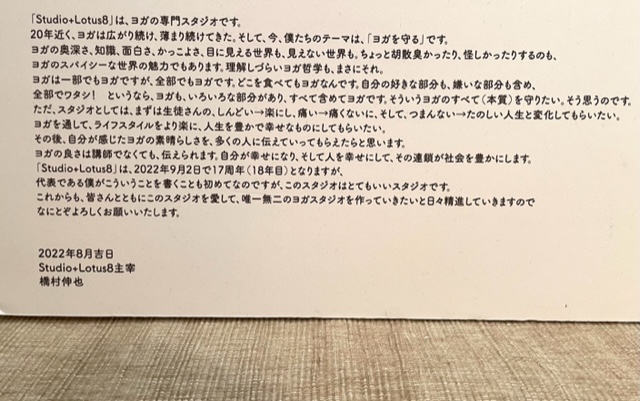 「Studio+Lotus8」は、ヨガの専門スタジオです。
20年近く、ヨガは広がり続け、薄まり続けてきた。そして、今、僕たちのテーマは、「ヨガを守る」です。
ヨガの奥深さ、知識、面白さ、かっこよさ、目に見える世界も、見えない世界も。ちょっと胡散臭かったり、怪しかったりするのも、
ヨガのスパイシーな世界の魅力でもあります。理解しづらいヨガ哲学も、まさにそれ。
ヨガは一部でもヨガですが、全部でもヨガです。どこを食べてもヨガなんです。自分の好きな部分も、嫌いな部分も含め、
全部でワタシ！ というなら、ヨガも、いろいろな部分があり、すべて含めてヨガです。そういうヨガのすべて（本質）を守りたい。そう思うのです。
ただ、スタジオとしては、まずは生徒さんの、しんどい→楽にし、痛い→痛くないに、そして、つまんない→たのしい人生と変化してもらいたい。
ヨガを通して、ライフスタイルをより楽に、人生を豊かで幸せなものにしてもらいたい。
その後、自分が感じたヨガの素晴らしさを、多くの人に伝えていってもらえたらと思います。
ヨガの良さは講師でなくても、伝えられます。自分が幸せになり、そして人を幸せにして、その連鎖が社会を豊かにします。
「Studio+Lotus8」は、2022年9月2日で17周年（18年目）となりますが、
代表である僕がこういうことを書くことも初めてなのですが、このスタジオはとてもいいスタジオです。
これからも、皆さんとともにこのスタジオを愛して、唯一無二のヨガスタジオを作っていきたいと日々精進していきますので
なにとぞよろしくお願いいたします。
2022年8月吉日
Studio+Lotus8主宰
橋村伸也